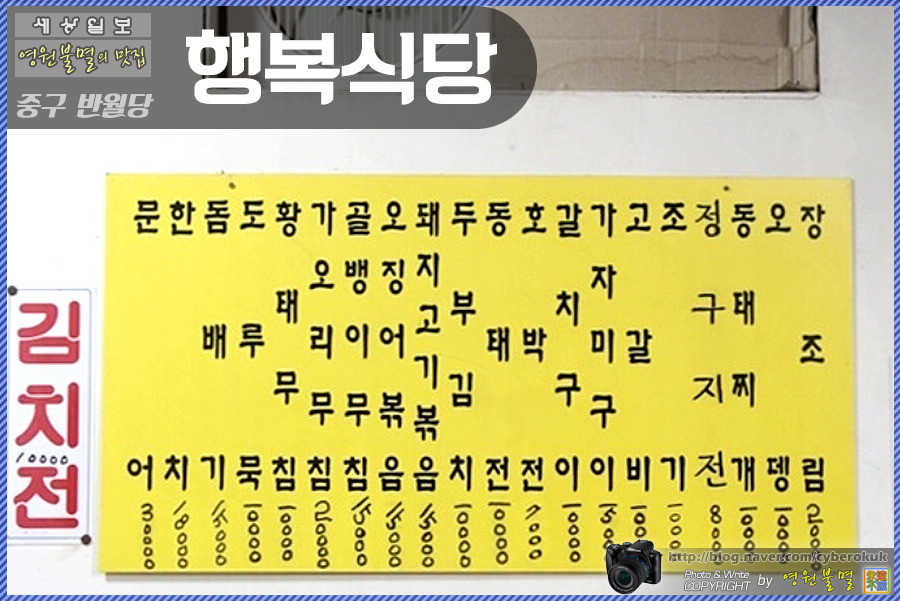 세상일보
영원불멸의 맛집
중구 반월당
행복식당
문어 30000
한치
돔배기 15000
도루묵 10000
황태무침 10000
가오리무침 20000
골뱅이무침 15000
오징어볶음 15000
돼지고기볶음 15000
두부김치 10000
동태전 10000
호박전 7000
갈치구이 10000
가자미구이
고갈비
조기
정구지전 8000
동태찌개 10000
오뎅 10000
장조림 20000
김치전
10000
http://blog.naver.com/cyberokuk
Photo & Write
COPYRIGHT by 영원불멸